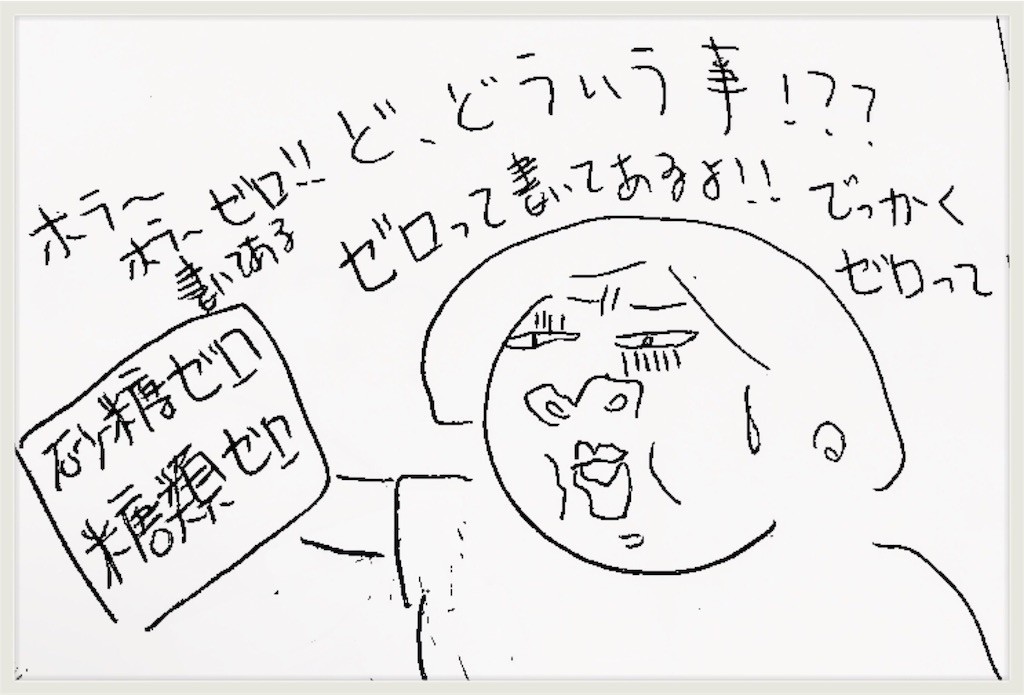 ど、どういう事!??
ホラ〜
ホラ〜ゼロ!!
書いてある
ゼロって書いてあるよ!!
でっかく
ゼロって
砂糖ゼロ
糖類ゼロ